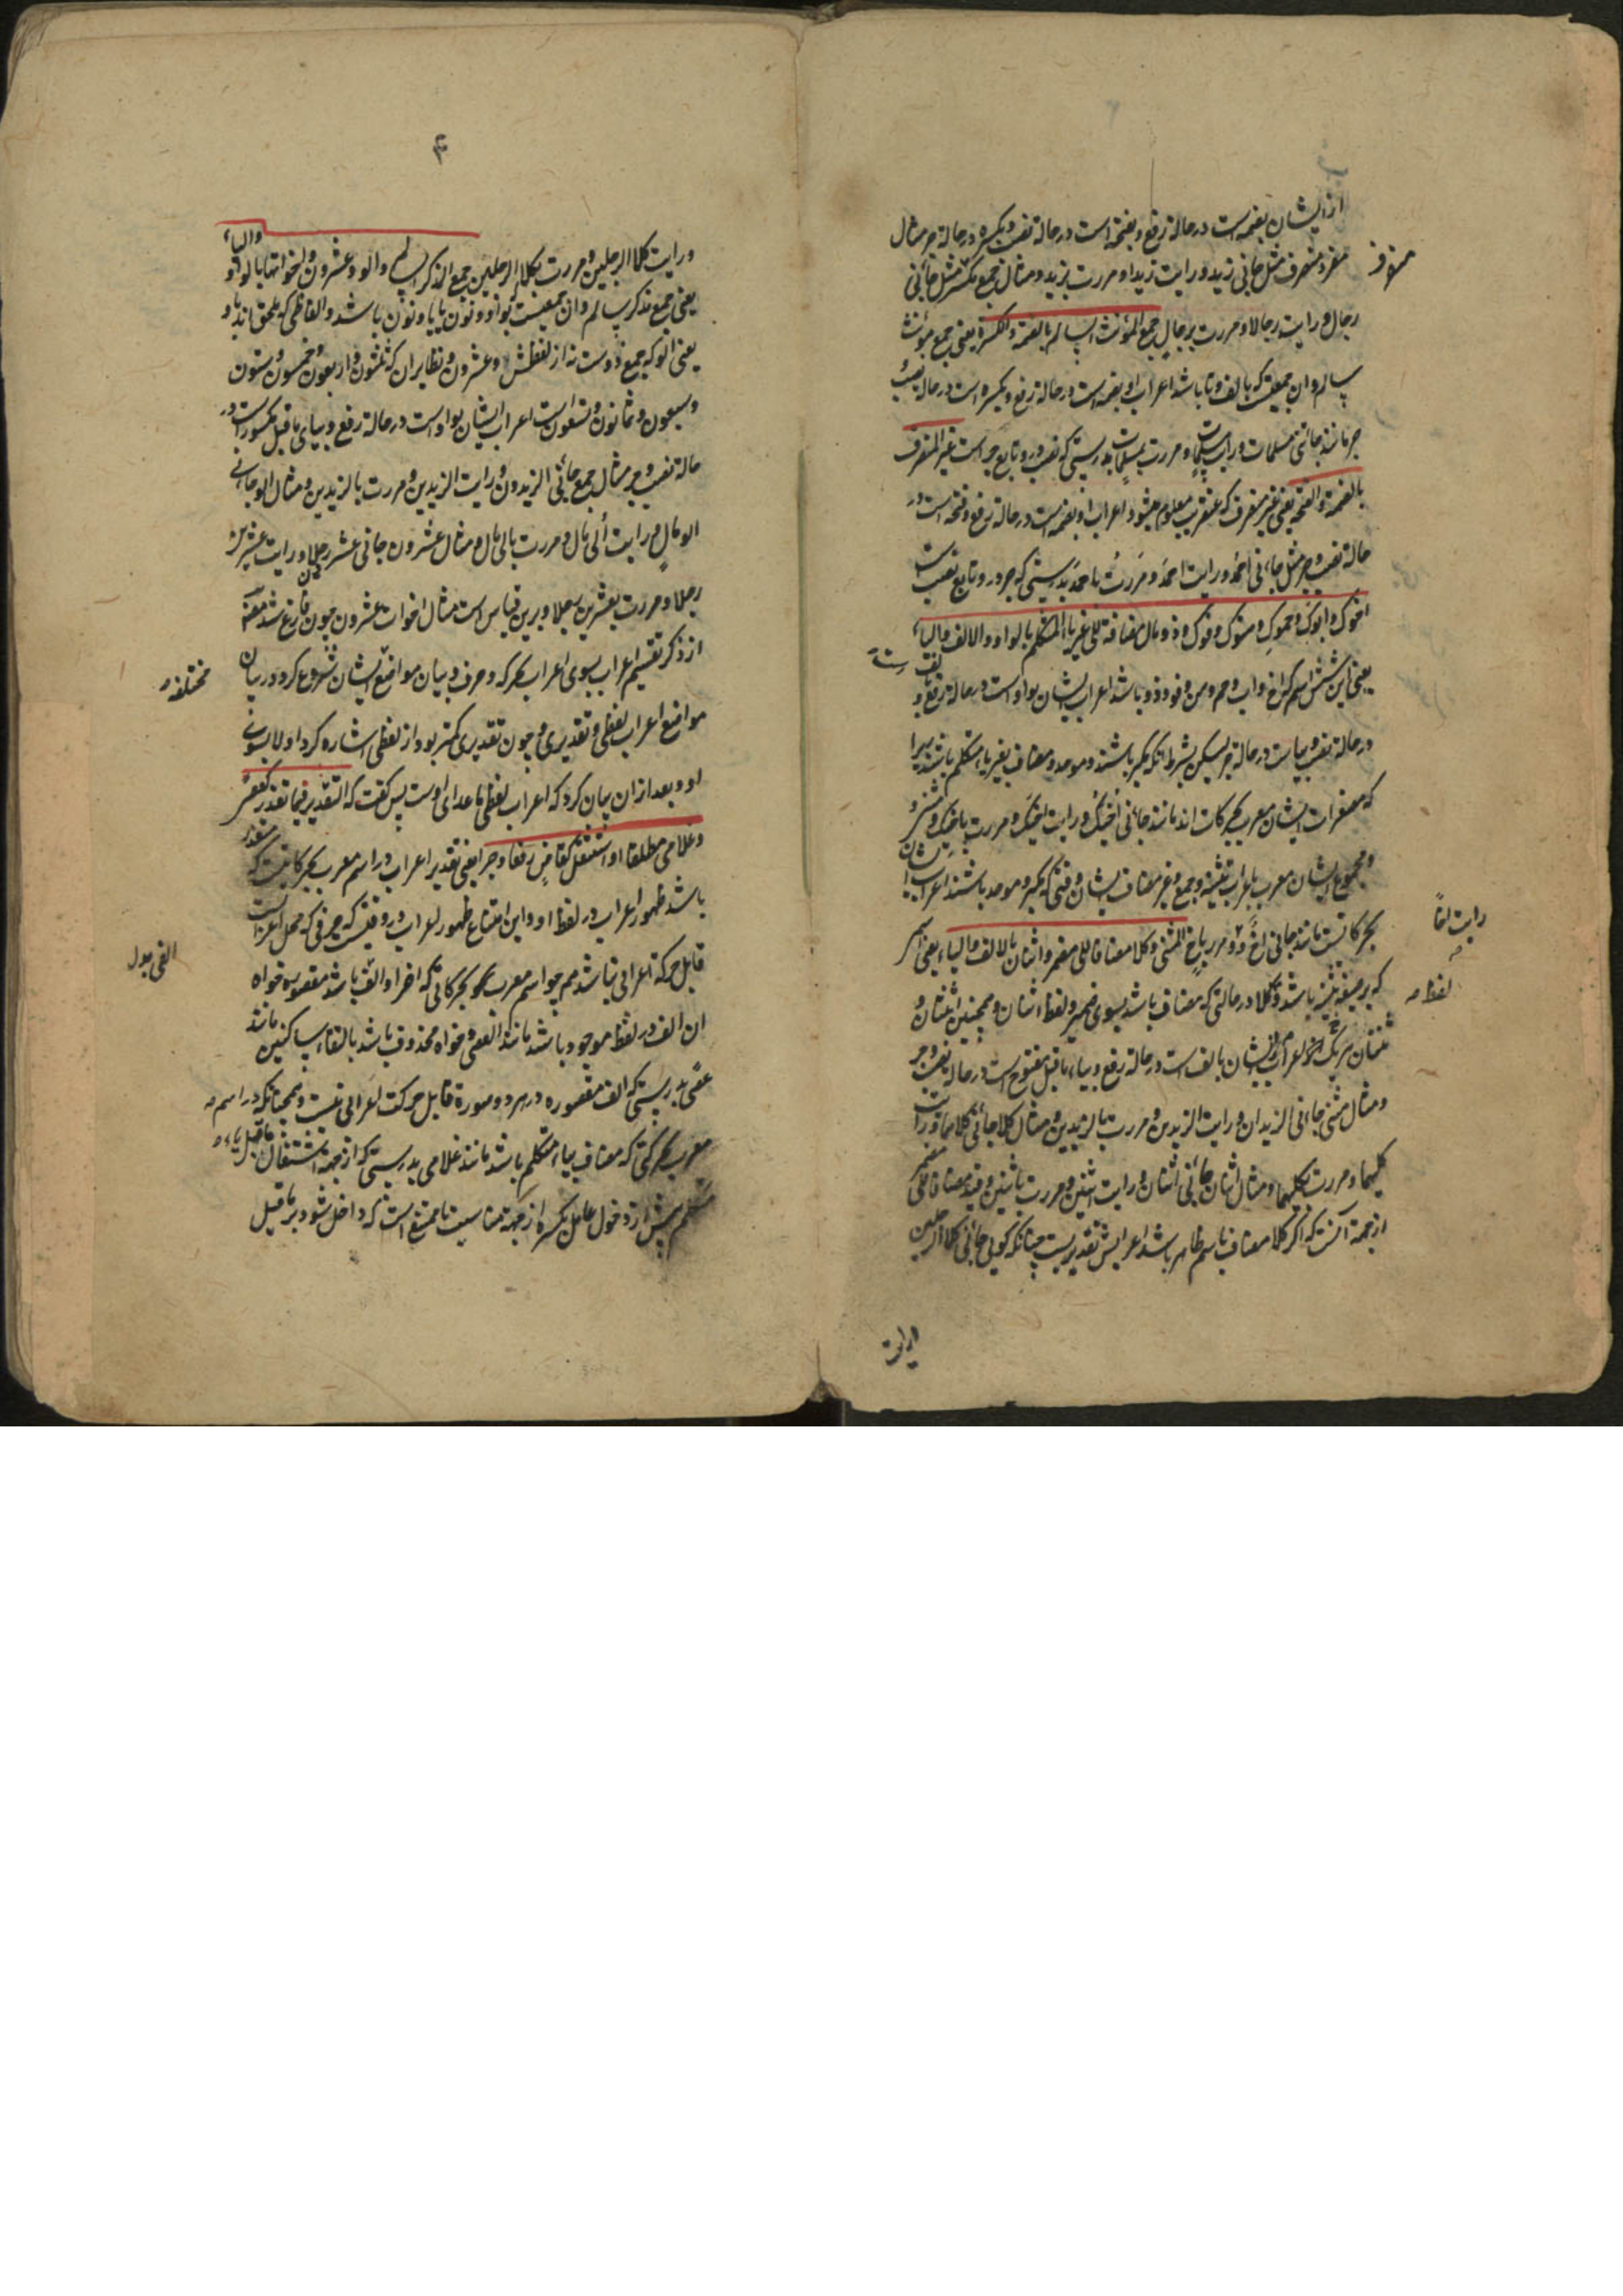 از ایشان بضمه است در حالة رفع و بفتحه است در حالة نصب و بکسره در حالة جر مثال
مفرد منصرف مثل جاءنی زید و رایت زیدا و مررت بزید و مثال جمع مکسر مثل جاءنی
رجال و رایت رجالا و مررت برجال جمع المؤنث السالم بالضمة و الکسرة یعنی جمع مؤنث
سالم و ان جمعیست که بالف و تا باشد اعراب او بضمه است در حالة رفع و بکسره است در حالة نصب و
جر مانند جاءتنی مسلمات و رایت مسلمات و مررت بمسلمات بدرستی که نصب درو تابع جر است غیر المنصرف
بالضمة و الفتحة یعنی غیر منصرف که عنقریب معلوم میشود اعراب او بضمه است در حالة رفع و فتحه است در
حالة نصب و جر مثل جاءنی احمد و رایت احمد و مررت باحمد بدرستی که جر درو تابع نصب است
اخوک و ابوک و حموک و هنوک و فوک و ذو مال مضافة الی غیر یاء المتکلم بالواو و الالف و الیاء
یعنی این شش اسم که اخ و اب و حم و هن و فو و ذو باشد اعراب ایشان بواو است در حالة رفع و بالف
در حالة نصب و بیاست در حالة جر لیکن بشرط آنکه مکبر باشند و موحد و مضاف بغیر یاء متکلم باشند زیرا
که مصغرات ایشان معرب بحرکات اند مانند جاءنی اخیک و رایت اخیک و مررت باخیک و مثنی و
مجموع ایشان معرب باعراب تثنیه و جمع و غیر مضاف ایشان وقتی که مکبر و موحد باشند اعراب ایشان
بحرکاتست مانند جاءنی اخ و مررت باخ المثنی و کلا مضافا الی مضمر و اثنان بالالف و الیاء یعنی اسم
که بر صیغه تثنیه باشد و کلا در حالتی که مضاف باشد بسوی ضمیر و لفظ اثنان و همچنین اثنتان و
ثنتان هر یک از ایشان بالف است در حالة رفع و بیاء ماقبل مفتوح است در حالة نصب و جر
و مثال مثنی جاءنی الزیدان و رایت الزیدین و مررت بالزیدین و مثال کلا جاءنی کلاهما و رایت
کلیهما و مررت بکلیهما و مثال اثنان جاءنی اثنان و رایت اثنین و مررت باثنین و قید مضافا الی مضمر
از جهة آنست که اگر کلا مضاف باسم ظاهر باشد اعرابش تقدیریست چنانکه کوئی جاءنی کلا الرجلین
رایت اخا
لفظ
و رایت
۴
و رایت کلا الرجلین و مررت بکلا الرجلین جمع المذکر السالم و الو و عشرون و اخواتها بالواو و الیاء
یعنی جمع مذکر سالم و ان جمعیست بواو و نون یا یا و نون باشد و الفاظی که ملحق اند باو
یعنی الو که جمع ذو است نه از لفظش و عشرون و نظایر ان که ثلثون و اربعون و خمسون و ستون
و سبعون و ثمانون و تسعون است اعراب ایشان بواو است در حالة رفع و بیای ماقبل مکسور است در
حالة نصب و جر مثال جمع جاءنی الزیدون و رایت الزیدین و مررت بالزیدین و مثال الو جاءنی
الو مال و رایت الی مال و مررت بالی مال و مثال عشرون جاءنی عشرون رجلا و رایت عشرین
رجلا و مررت بعشرین رجلا و برین قیاس است مثال اخوات عشرون چون فارغ شد مصنف
از ذکر تقسیم اعراب بسوی اعراب بحرکه و حرف و بیان مواضع ایشان شروع کرد در بیان
مواضع اعراب لفظی و تقدیری و چون تقدیری کمتر بود از لفظی اشاره کرد اولا بسوی
او و بعد از ان بیان کرد که اعراب لفظی ماعدای اوست پس کفت که التقدیر فیما تعذر کعصا
و غلامی مطلقا او استثقل کقاض رفعا و جرا یعنی تقدیر اعراب در اسم معرب بحرکاتیست که متعذر
باشد ظهور اعراب در لفظ او و این امتناع ظهور اعراب در وقتیست که حرفی که محل اعرابست
قابل حرکة اعرابی نباشد همچو اسم معرب بحرکاتی که اخر او الف باشد مقصوره خواه
ان الف در لفظ موجود باشد مانند العصی و خواه محذوف باشد بالتقاء ساکنین مانند
عصی بدرستی که الف مقصوره در هر دو صورة قابل حرکت اعرابی نیست و همچنانکه در اسم
معرب بحرکتی که مضاف بیاء متکلم باشد مانند غلامی بدرستی که از جهة اشتغال ماقبل یاء
متکلم پیش از دخول عامل بکسره از جهة مناسبت یا ممتنع است که داخل شود بر ماقبل
مختلفه